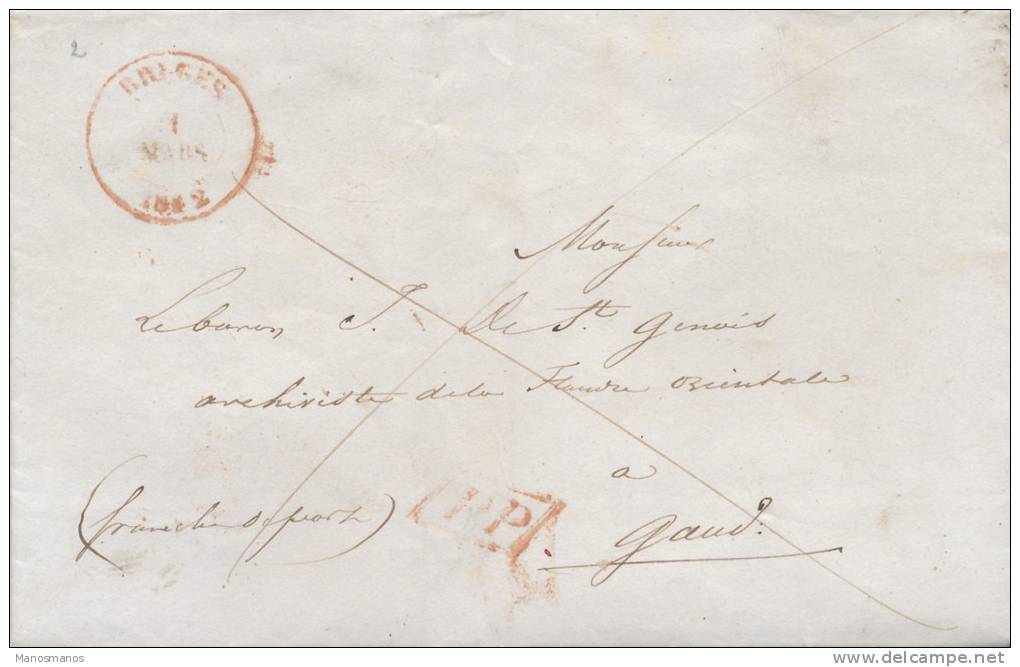 2
BRUGES
1
MARS
1842
Monsieur
Le baron J. De St. Genois
archiviste de la Flandre orientale
a
(franche de port)
PP
gand.
Manosmanos
www.delcampe.net